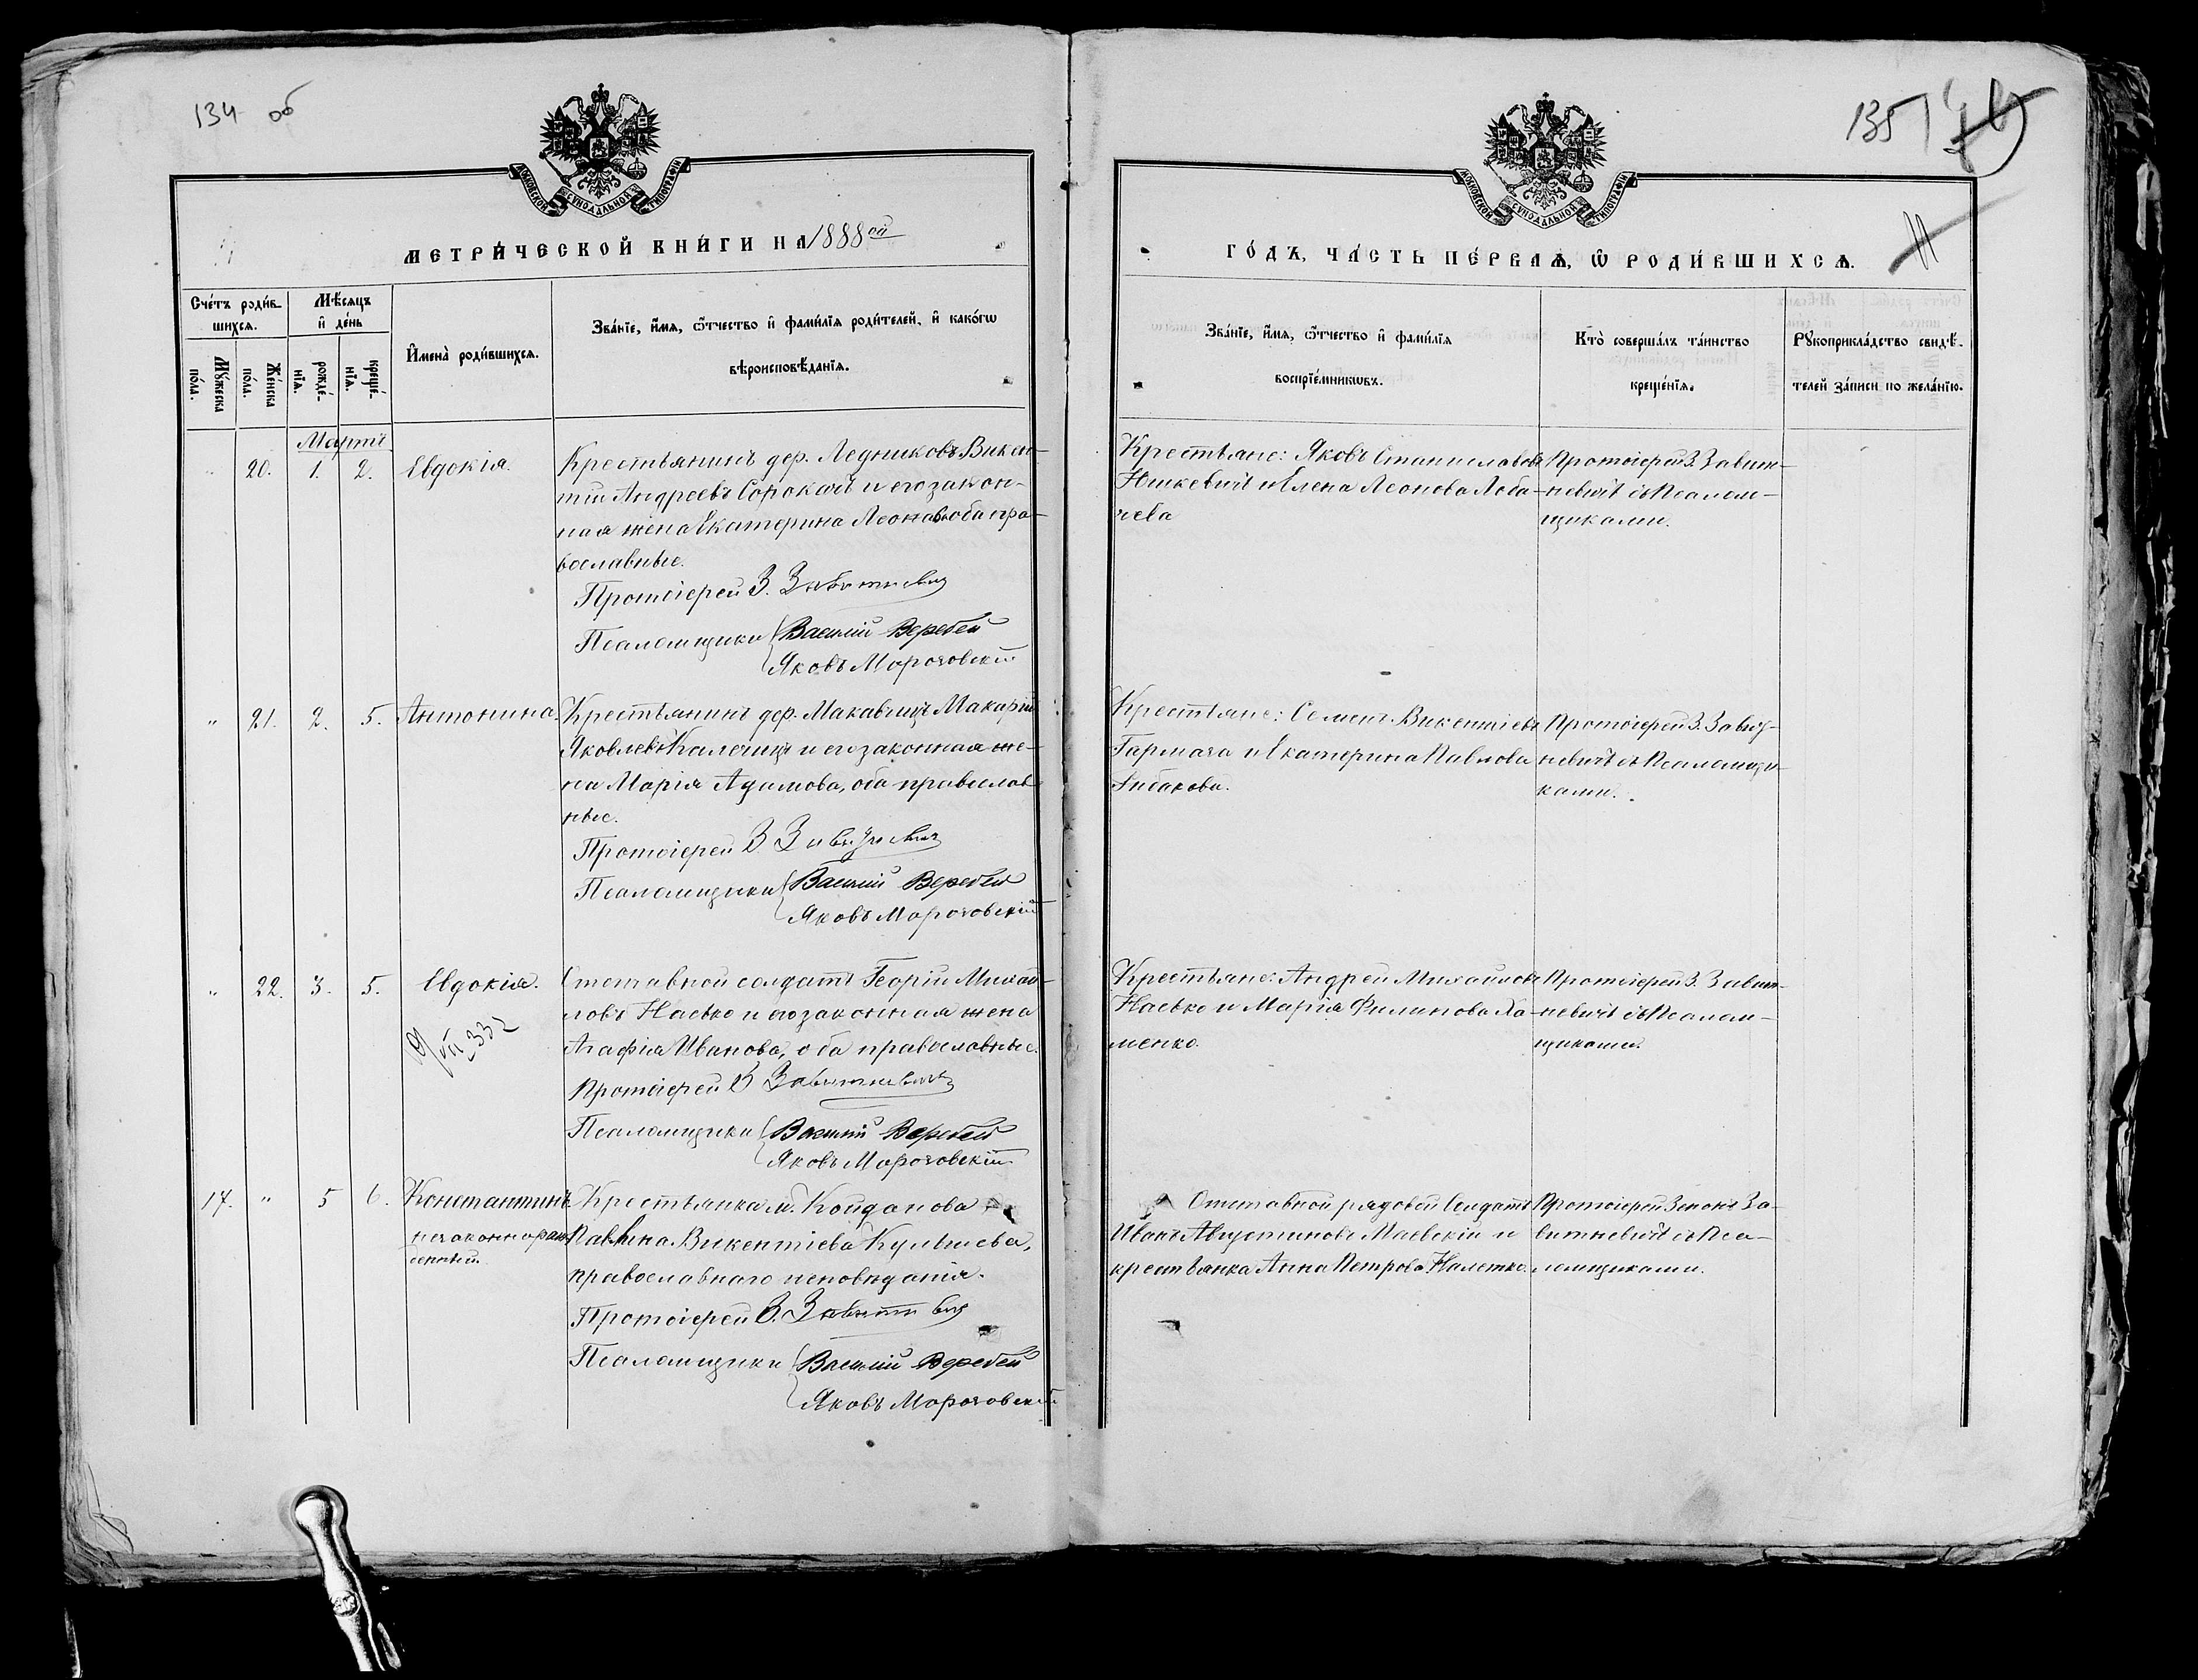 134 об
МОСКОВСКОЙ СУНОДАЛЬНОЙ ТИПОГРАФІИ
МЕТРИ́ЧЕСКОЙ КНИ́ГИ НА 1888ой
Сче́тъ роди́в-
шихся.
Мѣ́сяцъ
и҆ де́нь
Мꙋ́жеска
по́ла.
Же́нска
по́ла.
рожде́-
нїѧ.
креще́-
нїѧ.
И҆мена̀ роди́вшихсѧ.
Зва́нїе, и҆́мѧ, ѻ҆́тчество и҆ фами́лїѧ роди́телей, и҆ како́гѡ
вѣроисповѣ́данїѧ.
Мартъ
" 20. 1. 2. Евдокія.
Крестьянинъ дер. Ледниковъ Викен-
тій Андреевъ Сорокачъ и его закон-
ная жена Екатерина Леонова оба пра-
вославные.
Протоіерей З. Завитневич
Псаломщики Василій Веребей
Яковъ Морозовскій
" 21. 2. 5. Антонина.
Крестьянинъ дер. Макавчицъ Макарій
Яковлевъ Калечицъ и его законная же-
на Марія Адамова, оба православ
ные.
Протоіерей З Завитневич
Псаломщики Василій Веребей
Яковъ Морозовскій
" 22. 3. 5. Евдокія.
332
Отставной солдатъ Георгій Михай-
ловъ Насько и его законная жена
Агафія Иванова, оба православные.
Протоіерей З Завитневичъ
Псаломщики Василій Веребей
Яковъ Морозовскій
17. " 5 6. Константинъ
незаконнорож
денный.
Крестьянка м. Койданова
Павлина Викентіева Кульшева,
православнаго исповѣданія.
Протоіерей З. Завитневич
Псаломщики Василій Веребей
Яковъ Морозовскій
135
МОСКОВСКОЙ СУНОДАЛЬНОЙ ТИПОГРАФІИ
ГО́ДЪ, ЧА́СТЬ ПЕ́РВАѦ, Ѡ҆ РОДИ́ВШИХСѦ.
Зва́нїе, и҆́мѧ, ѻ҆́тчество и҆ фами́лїѧ
воспрїе́мникѡвъ.
Кто̀ соверша́лъ та́инство
креще́нїѧ.
Рꙋкоприкла́дство свидѣ́-
телей за́писи по жела́нїю.
Крестьяне: Яковъ Станиславовъ
Юшкевичъ и Елена Леонова Лоба-
чева
Протоіерей З. Завит-
невичъ съ Псалом-
щиками.
Крестьяне: Семенъ Викентіевъ
Гармаза и Екатерина Павлова
Рибакова.
Протоіерей З. Завит-
невичъ съ Псаломщи-
ками.
Крестьяне: Андрей Михайловъ
Насько и Марія Филипова Ха-
менко.
Протоіерей З. Завит-
невичъ съ Псалом-
щиками.
Отставной рядовой Солдатъ
Иванъ Августиновъ Маевскій и
крестьянка Анна Петрова Налетко.
Протоіерей Зенонъ За-
витневичъ съ Пса-
ломщиками.